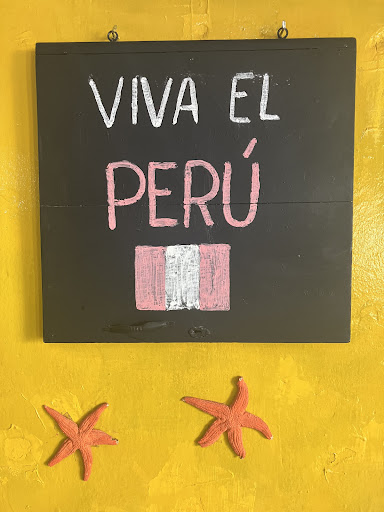 VIVA EL
PERÚ